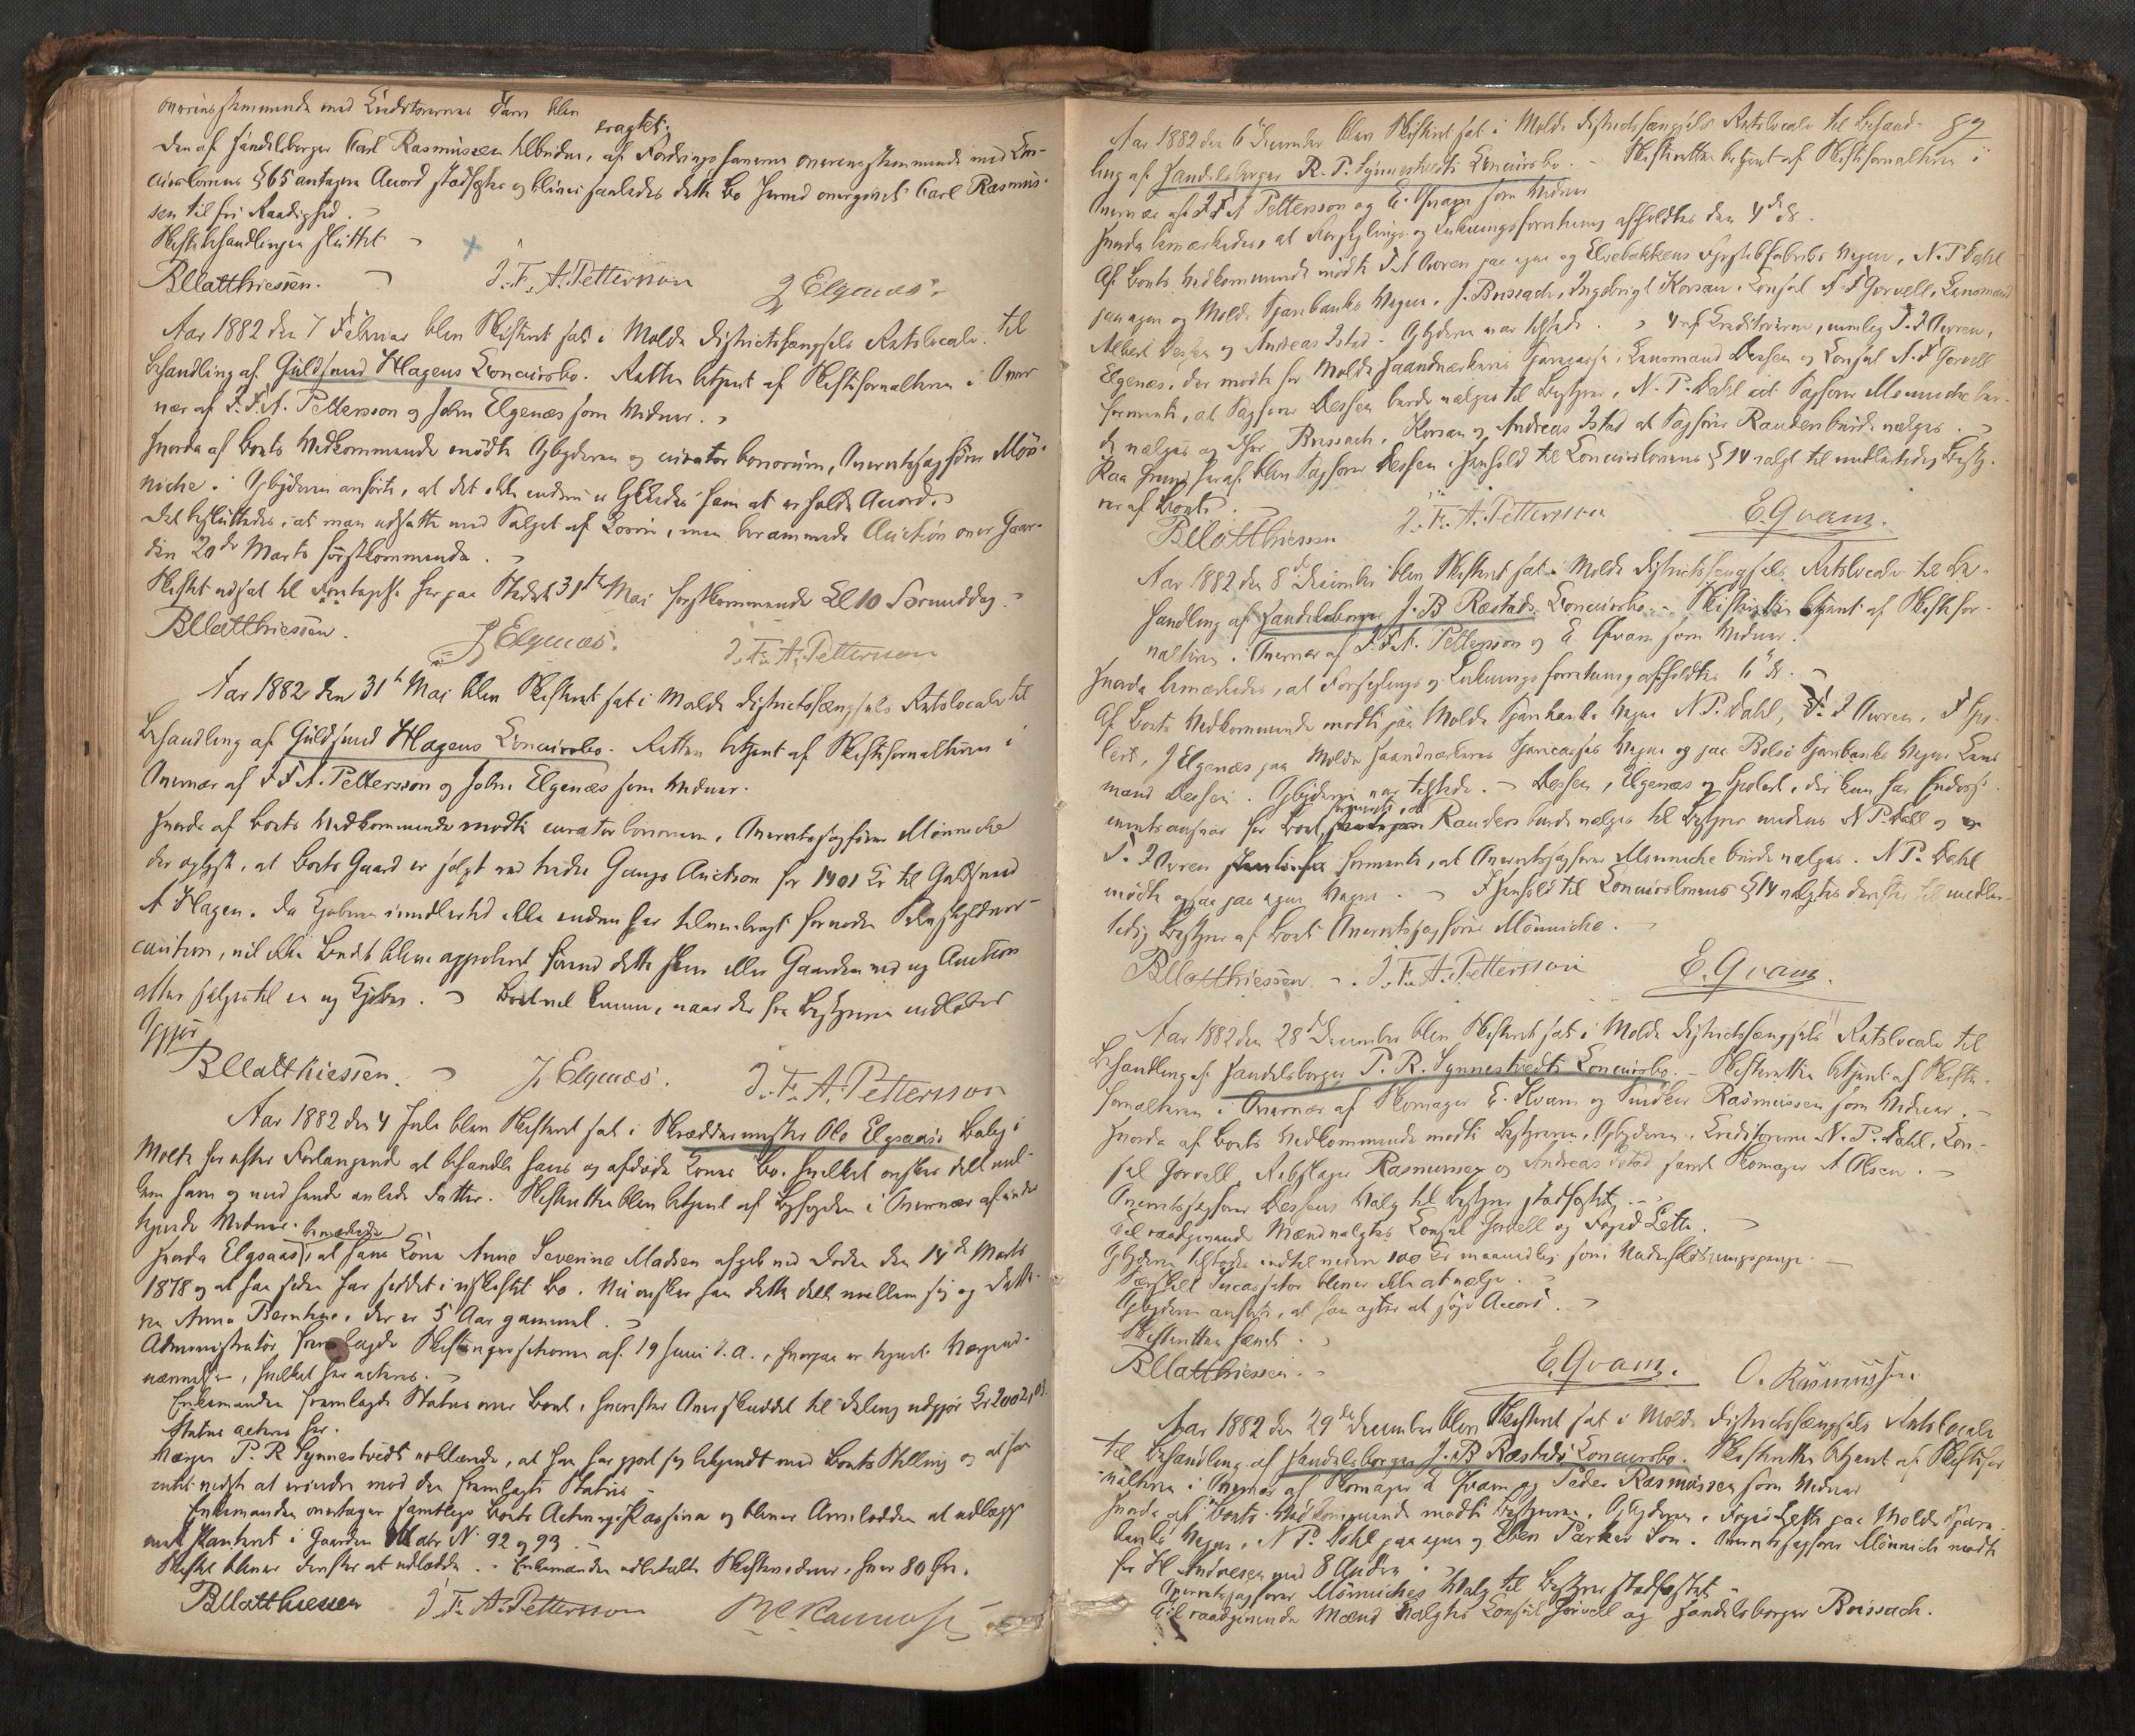 overensstemmende med Creditorernes Tarv blev
eragtet:
Den af Handelsborger Carl Rasmussen tilbudne, af Fordringshaverne overensstemmende med Con-
curslovens § 65 antagne Accord stadfæstes og bliver saaledes dette Bo herved overgivet Carl Rasmus-
sen til fri Raadighed.
Skiftebehandlingen sluttet
BMatthiessen. J. F. A. Petterson J Elgenæs.
Aar 1882 den 7 Februar blev Skifteret sat i Molde Districtsfængsels Retslocale til
Behandling af Guldsmed Hagens Concursbo. Retten betjent af Skifteforvalteren i Over-
vær af J. F. A. Petterson og John Elgenæs som Vidner.
Hvorda af Boets Vedkommende mødte Opbyderen og curator bonorum, Overretssagfører Mön-
niche. Opbyderen anførte, at det ikke endnu er lykkedes ham at erholde Accord.
Det besluttedes, at man udsatte med Salget af Løsøre, men berammede Auction over Gaar-
den 20de Marts førstkommende.
Skiftet udsat til Foretagelse her paa Stedet 31te Mai førstkommende Kl 10 Formiddag.
BMatthiessen. J Elgenæs. J. F. A. Petterson
Aar 1882 den 31te Mai blev Skifteret sat i Molde Districtsfængsels Retslocale til
Behandling af Guldsmed Hagens Concursbo. Retten betjent af Skifteforvalteren i
Overvær af J F A. Petterson og John Elgenæs som Vidner.
Hvorda af Boets Vedkommende mødte curator bonorum, Overretssagfører Mönniche
der oplyste, at Boets Gaard er solgt ved tredie Gangs Auction for 1401 Kr til Guldsmed
A Hagen. Da Kjøberen imidlertid ikke endnu har tilveiebragt fornøden Selvskyldner-
caution, vil ikke Budet blive approberet førend dette sker eller Gaarden ved ny Auction
atter sælges til en ny Kjøber. Boet vil kunne, naar der fra Bestyreren indløber
Opgjør
BMatthiessen. J. Elgenæs. J. F. A. Petterson
Aar 1882 den 4 Juli blev Skifteret sat i Skræddermester Ole Elgsaas's Bolig i
Molde for efter Forlangende at behandle hans og afdøde Kones Bo, hvilket ønskes delt mel-
lem ham og med hende avlede Datter. Skifteretten blev betjent af Byfogden i Overvær af under-
tegnede Vidner.
bemærkede
Hvorda Elgsaas, at hans Kone Anne Severine Madsen afgik ved Døden den 14de Marts
1878 og at han siden har siddet i uskiftet Bo. Nu ønsker han dette delt mellem sig og Datte-
ren Anna Bernhine, der er 5 Aar gammel.
Administrator fremlagde Skifteangivelsen af 19 Juni d. A., hvorpaa er tegnet Værgeud-
nævnelse, hvilket her acteres.
Enkemanden fremlagde Status over Boet, hvorefter Overskuddet til Deling udgjør Kr 2002,03.
Status acteres her.
Værgen P. R Synnestvedt erklærede, at han har gjort sig bekjendt med Boets Stilling og at han
intet vidste at erindre mod den fremlagte Status
Enkemanden overtager samtlige Boets Activa og Passiva og bliver Arvelodden at udlægge
med Panteret i Gaarden Matr N. 92 og 93.
Skifte bliver derefter at udlodde. Enkemanden udbetalte Skiftevidner, hver 80 Øre.
BMatthiessen J. F. A. Petterson
89
Aar 1882 den 6te December blev Skifteret sat i Molde Districtsfængsels Retslocale til Behand-
ling af Handelsborger R. P. Synnestvedts Concursbo. Skifteretten betjent af Skifteforvalteren i
Overvær af J F A Petterson og E. Qvam som Vidner
Hvorda bemærkedes, at Forseglings og Lukningsforretning afholdtes den 4de ds.
Af Boets Vedkommende mødte J A Owren paa egne og Elvebakkens Fyrstikfabriks Vegne, N. P. Dahl
paa egne og Molde Sparebanks Vegne, J. Bussach, Ingebrigt Korsan, Consul A F Gørvell, Lensmand
Albert Dessen og Andreas Istad. Opbyderen var tilstede. 4 af Creditorerne, nemlig J. J Owren,
Elgenæs, der mødte for Molde Haandværkeres Sparecasse, Lensmand Dessen og Consul A. F Gørvell
formente, at Sagfører Dessen burde vælges til Bestyrer, N. P. Dahl at Sagfører Mönniche bur-
de vælges og Hr Bussach, Korsan og Andreas Istad at Sagfører Randers burde vælges.
Paa Grund heraf blev Sagfører Dessen i Henhold til Concurslovens § 14 valgt til midlertidig Besty-
rer af Boet.
BMatthiessen J. F. A. Petterson E. Qvam.
Aar 1882 den 8de December blev Skifteret sat i Molde Districtsfængsels Retslocale til Be-
handling af Handelsborger J. B Ræstads Concursbo. Skifteretten betjent af Skiftefor-
valteren i Overvær af J. F A. Petterson og E. Qvam som Vidner.
Hvorda bemærkedes, at Forseglings og Luknings forretning afholdtes 6te ds.
Af Boets Vedkommende mødte paa Molde Sparebanks Vegne N P. Dahl, J. J Owren, F Spo-
lert, J Elgenæs paa Molde Haandværkeres Sparecasses Vegne og paa Bolsø Sparebanks Vegne Lens
mand Dessen. Opbyderen var tilstede. Dessen, Elgenæs og Spolert, der kun har Endosse-
formente, at
mentsansvar for Boet, Randers burde vælges til Bestyrer medens N P. Dahl og
J. J Owren formente, at Overretssagfører Mönniche burde vælges. N P. Dahl
mødte ogsaa paa egne Vegne. I Henhold til Concurslovens § 14 valgtes derefter til midler-
tidig Bestyrer af Boet Overretssagfører Mönniche.
BMatthiessen. J. F. A. Petterson E. Qvam.
Aar 1882 den 28de December blev Skifteret sat i Molde Districtsfængsels Retslocale til
Behandling af Handelsborger P. R. Synnestvedts Concursbo. Skifteretten betjent af Skifte-
forvalteren i Overvær af Skomager E. Kvam og Rasmussen som Vidner.
Hvorda af Boets Vedkommende mødte Bestyreren, Opbyderen, Creditorerne N. P. Dahl, Con-
sul Gørvell, Rebslager Rasmussen og Andreas Istad samt Skomager A Olsen.
Overretssagfører Dessens Valg til Bestyrer stadfæstet.
Til raadgivende Mænd valgtes Consul Gørvell og Foged Lette.
Opbyderen tilstodes indtil videre 100 Kr maanedlig som Underholdningspenge.
Særskilt Incassator bliver ikke at vælge.
Opbyderen anførte, at han agter at søge Accord.
Skifteretten hævet
BMatthiessen. E. Qvam. O. Rasmussen
Aar 1882 den 29de December blev Skifteret sat i Molde Districtsfængsels Retslocale
til Behandling af Handelsborger J. B Ræstads Concursbo. Skifteretten betjent af Skiftefor
valteren i Overvær af Skomager E Qvam og Peder Rasmussen som Vidner
Hvorda af Boets Vedkommende mødte Bestyreren, Opbyderen, Foged Lette paa Molde Spare-
banks Vegne, N P. Dahl paa egne og Parker Son. Overretssagfører Mönniche mødte
for H Andresen med 8 Andre
Overretssagfører Mönniches Valg til Bestyrer stadfæstet
Til raadgivende Mænd valgtes Consul Gørvell og Handelsborger Bussach.